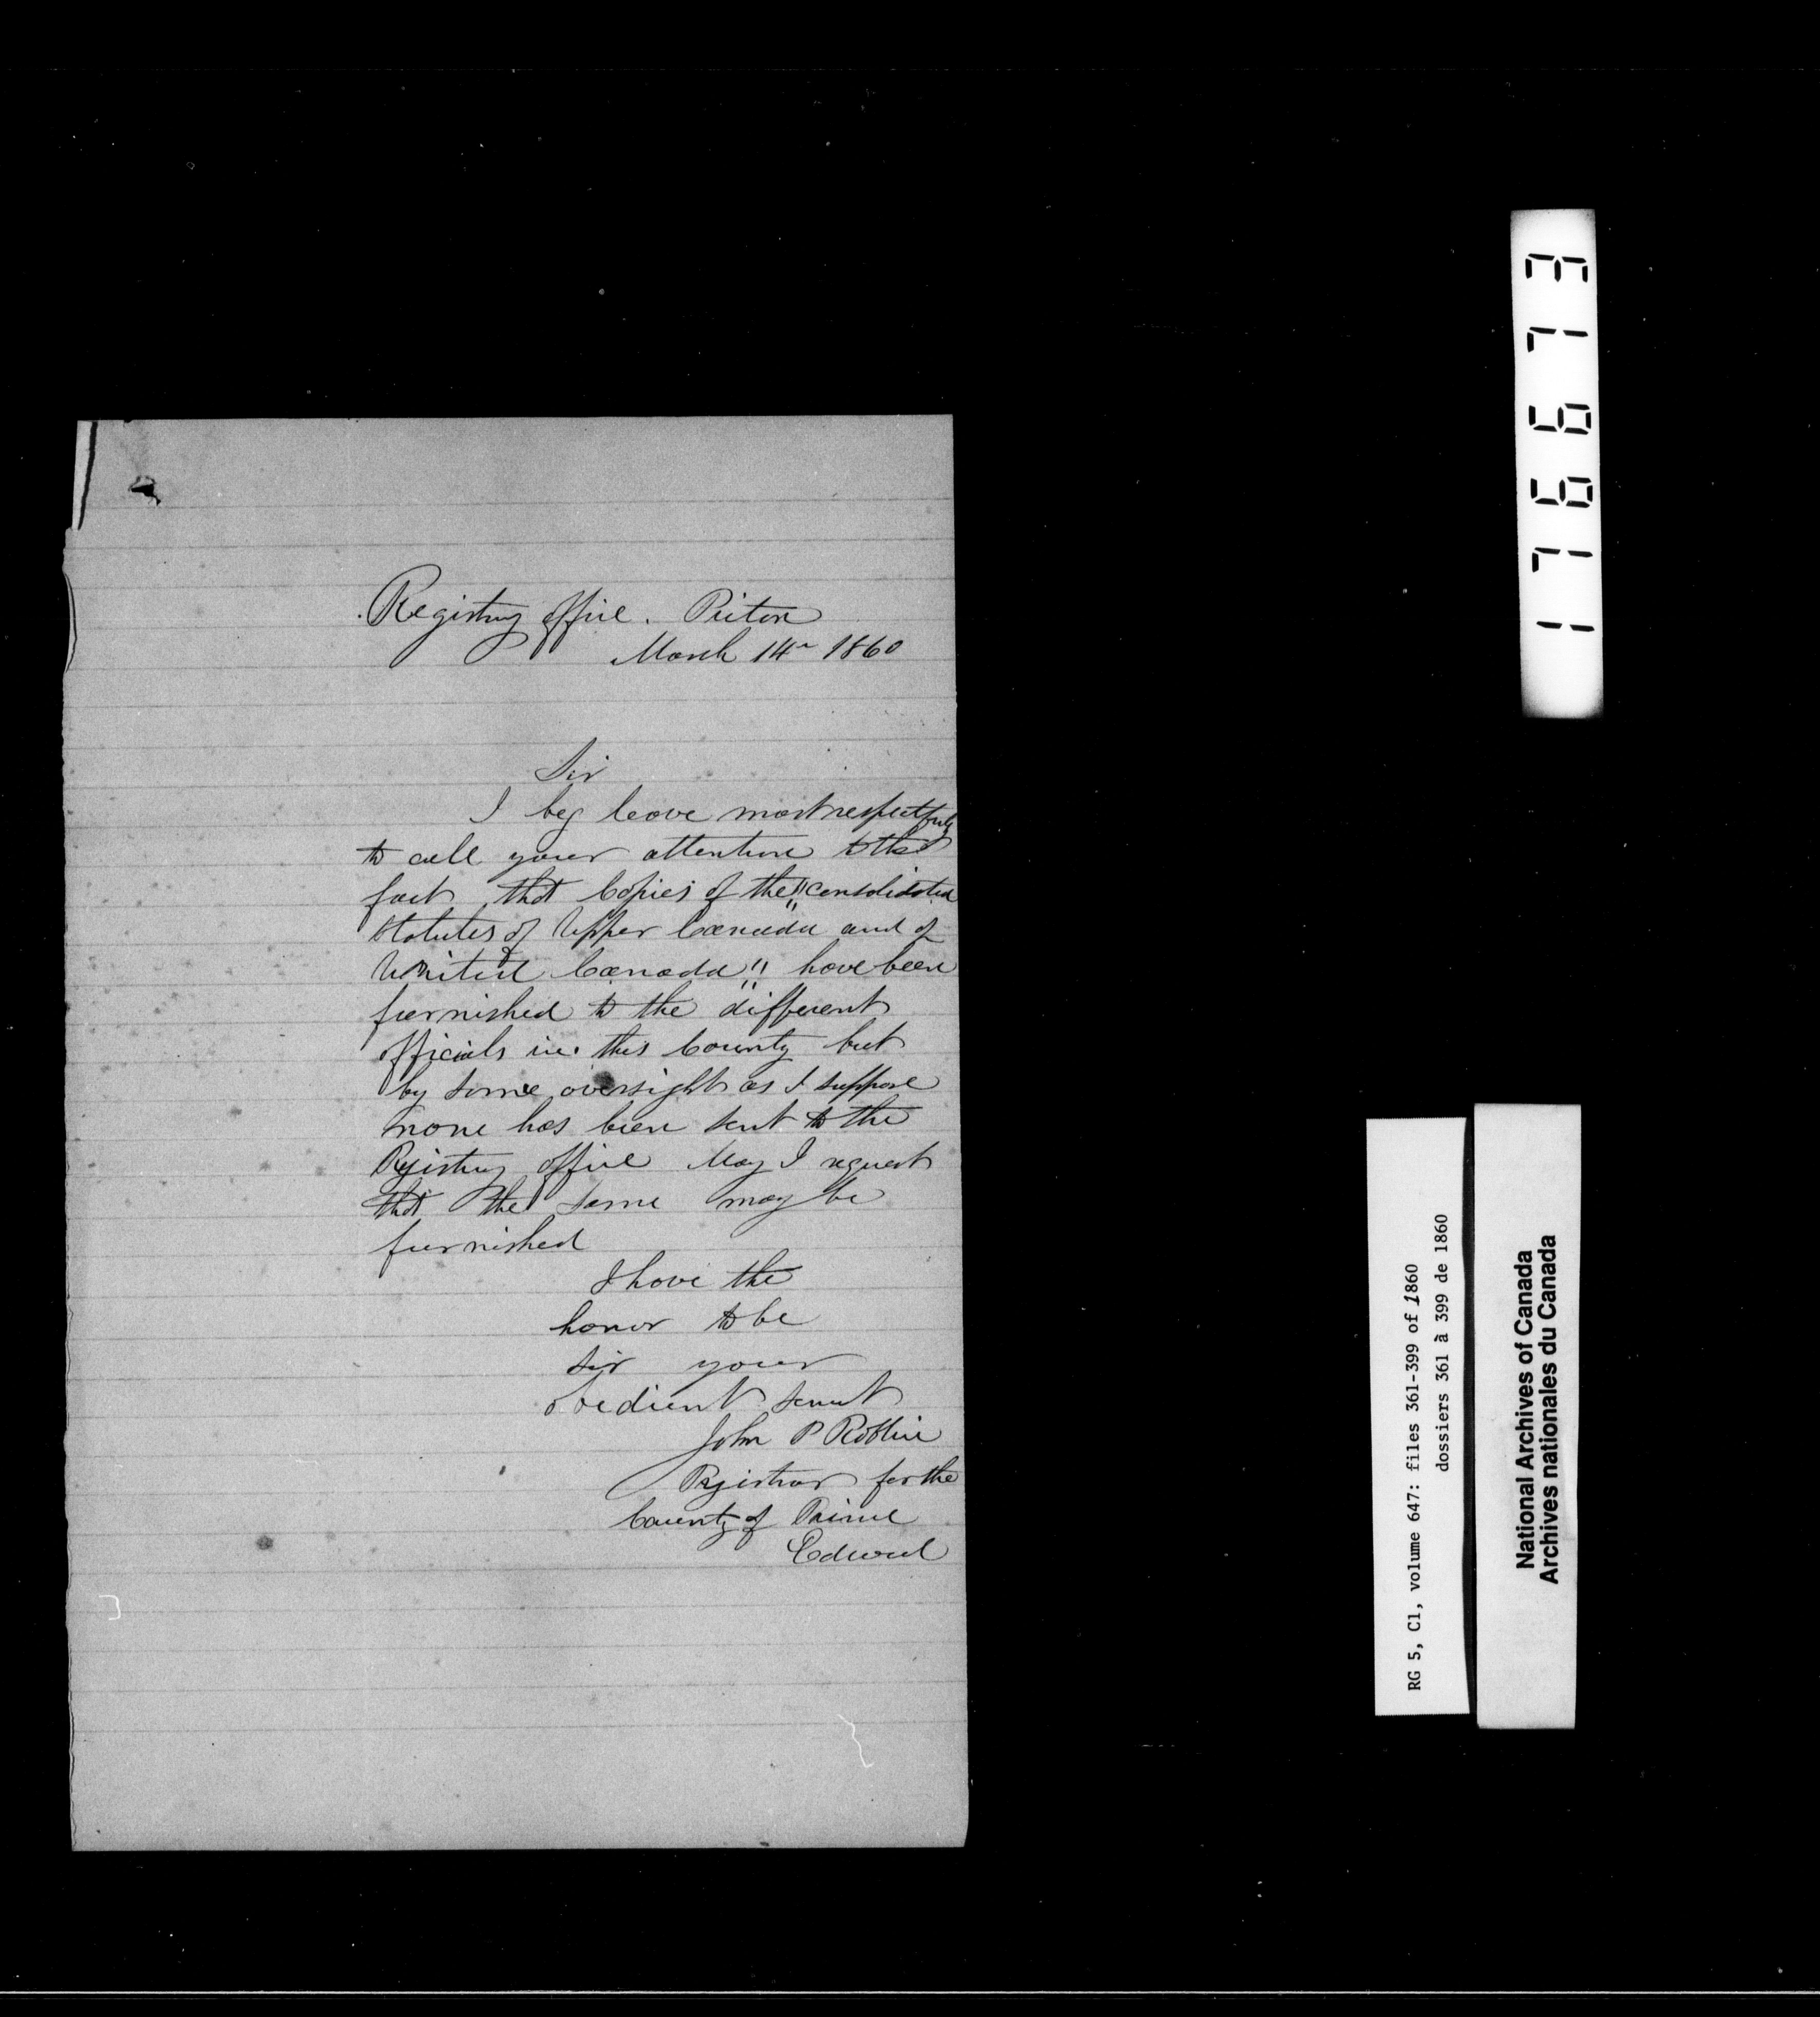 Registry office. Picton
March 14th 1860
Sir
I beg leave most respectfully
to call your attention to the
fact that Copies of the "consolidated
statutes of Upper Canada and of
United Canada" have been
furnished to the different
officials in this County but
by some oversight as I suppose
none has been sent to the
Registry office May I request
that the same may be
furnished
I have the
honor to be
Sir your
obedient servt
John P Roblin
Registrar for the
County of Prince
Edward
176673
RG 5, C1, volume 647: files 361-399 of 1860
dossiers 361 à 399 de 1860
National Archives of Canada
Archives nationales du Canada